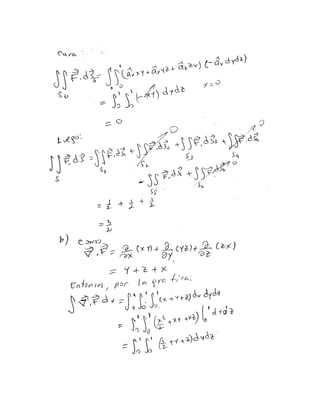 Cara
∬_{S6} F⃗.dS⃗6 = ∫∫(â_x xy + â_y yz + â_z zx)(-â_x dydz)
x=0
= ∫₀¹∫₀¹(-xy) dydz
= 0
Luego:
∬_S F⃗.dS⃗ = ∬_{S1} F⃗.dS⃗1 + ∬_{S2} F⃗.dS⃗2 + ∬_{S3} F⃗.dS⃗3 + ∬_{S4} F⃗.dS⃗4
+ ∬_{S5} F⃗.dS⃗5 + ∬_{S6} F⃗.dS⃗6
= 1/2 + 1/2 + 1/2
= 3/2
b) como
∇⃗.F⃗ = ∂/∂x (xy) + ∂/∂y (yz) + ∂/∂z (zx)
= y + z + x
Entonces, por la gra tira:
∫ ∇⃗.F⃗ dv = ∫₀¹∫₀¹∫₀¹ (x+y+z) dx dydz
= ∫₀¹∫₀¹ (x²/2 + xy + xz) |₀¹ dydz
= ∫₀¹∫₀¹ (1/2 + y + z) dydz